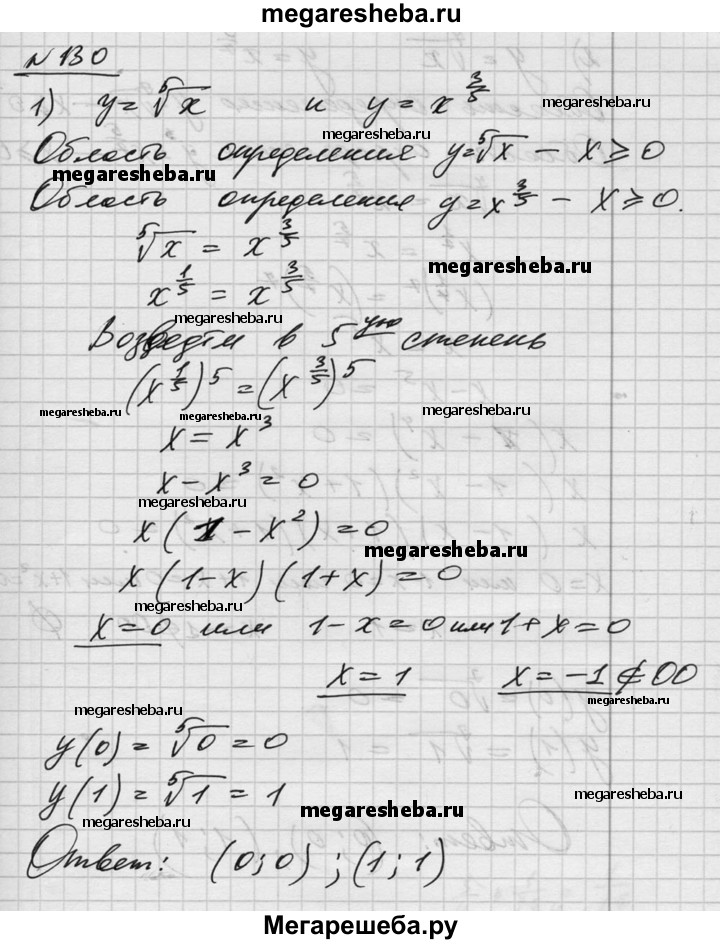 megaresheba.ru
№130
1) y = ⁵√x и y = x^(3/5)
megaresheba.ru
megaresheba.ru
Область определения y = ⁵√x – x ≥ 0
megaresheba.ru
Область определения y = x^(3/5) – x ≥ 0.
⁵√x = x^(3/5)
megaresheba.ru
x^(1/5) = x^(3/5)
megaresheba.ru
Возведём в 5ую степень
(x^(1/5))^5 = (x^(3/5))^5
megaresheba.ru megaresheba.ru
x = x³
x – x³ = 0
megaresheba.ru
x(1 – x²) = 0
megaresheba.ru
x(1 – x)(1 + x) = 0
megaresheba.ru
x = 0 или 1 – x = 0 или 1 + x = 0
x = 1 x = –1 ∉ ОО
megaresheba.ru
megaresheba.ru
y(0) = ⁵√0 = 0
megaresheba.ru
y(1) = ⁵√1 = 1
megaresheba.ru
megaresheba.ru
megaresheba.ru
Ответ: (0;0) ; (1;1)
megaresheba.ru
Мегарешеба.ру